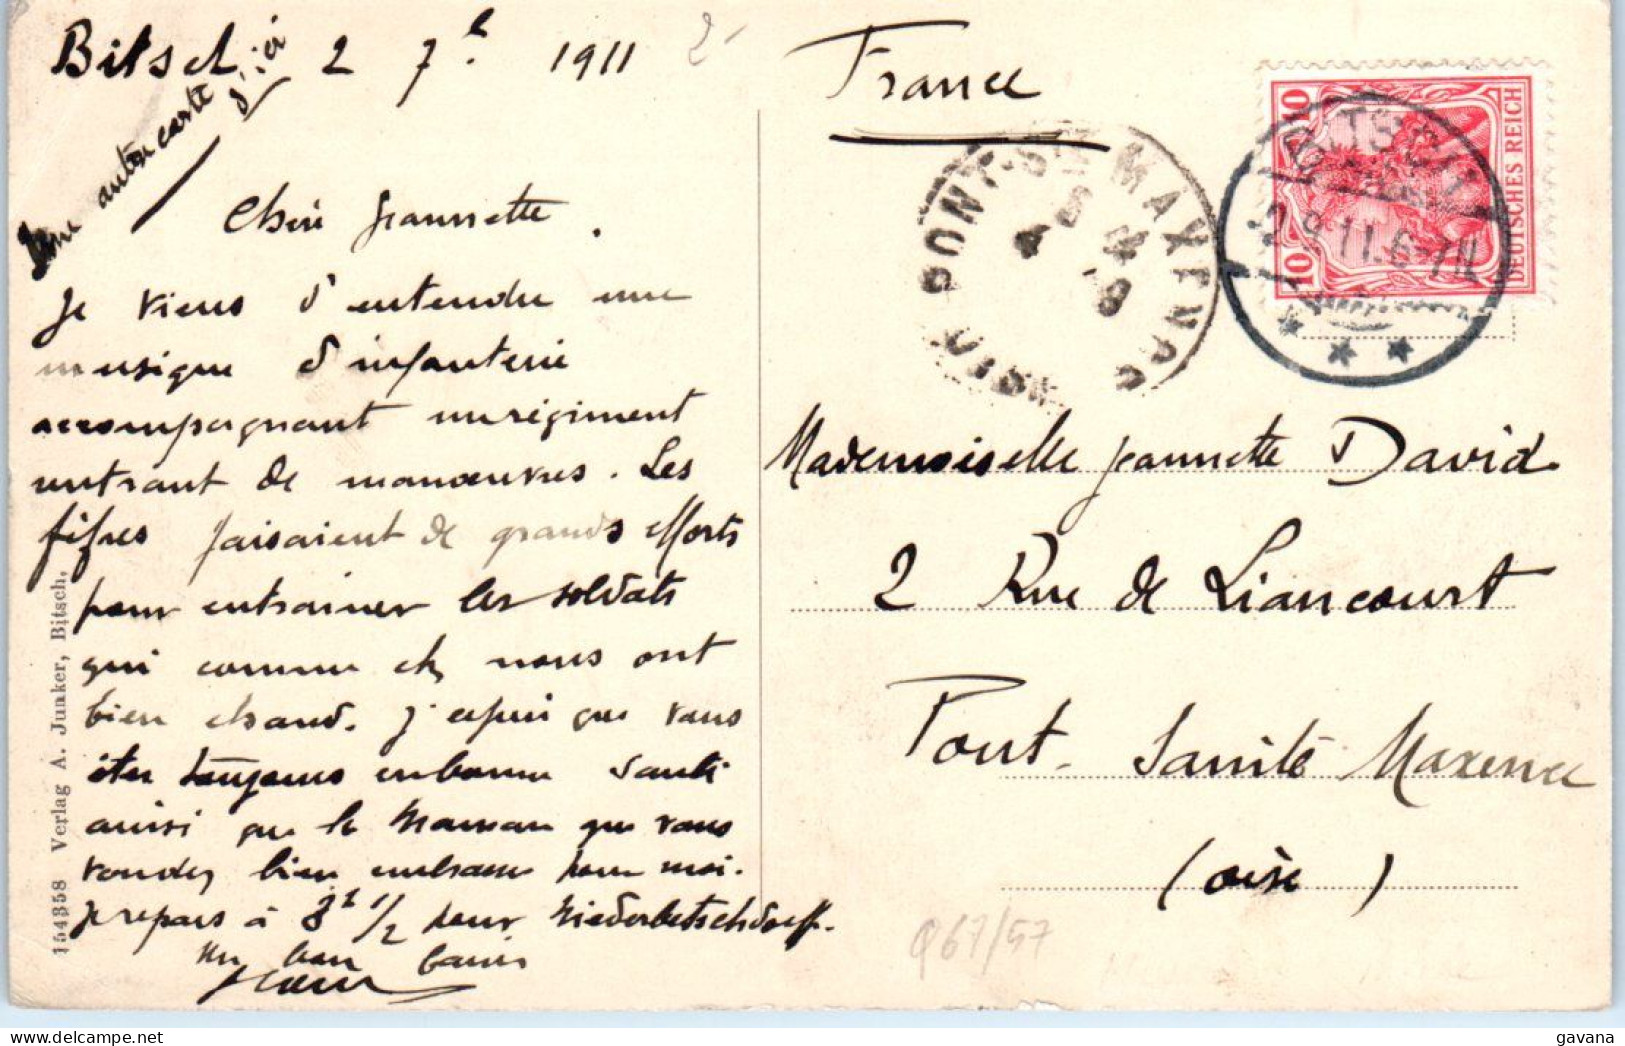 Bitsch 2 7bre 1911
Une autre carte d'ici
Chère Jeannette.
Je viens d'entendre une
musique d'infanterie
accompagnant un régiment
rentrant de manœuvres. Les
fifres faisaient de grands efforts
pour entrainer les soldats
qui comme chez nous ont
bien chaud. J'espère que vous
êtes toujours en bonne santé
ainsi que la Maman que vous
voudrez bien embrasser pour moi.
Je repars à 3h 1/2 pour Niederbetschdorff.
Un bon baiser
154358 Verlag A. Junker, Bitsch.
2-
France
DEUTSCHES REICH
10 10
BITSCH
2.9.11.6-7N
PONT-STE MAXENCE
OISE
Mademoiselle Jeannette David
2 Rue de Liancourt
Pont-Sainte Maxence
(oise)
Q67/57
gavana